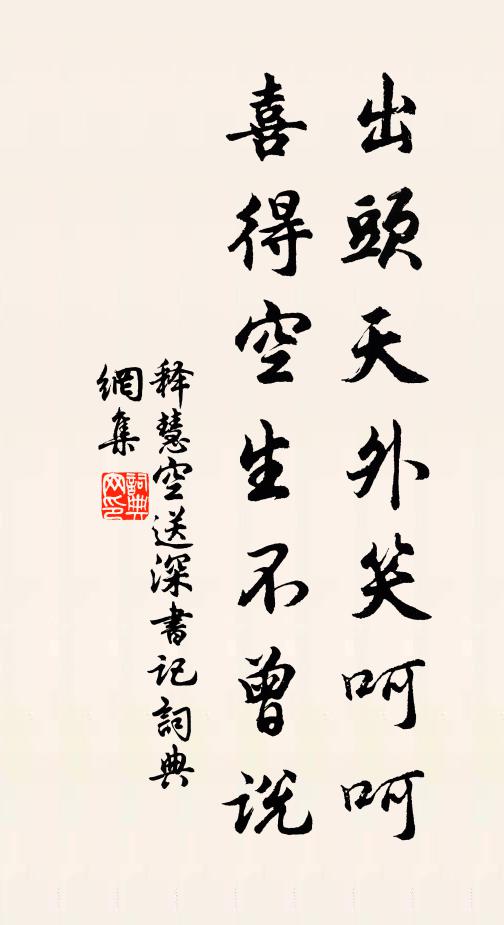 出頭天外笑呵呵
喜得空生不曾説
释慧空送深書记詞典
網集
詞典网印